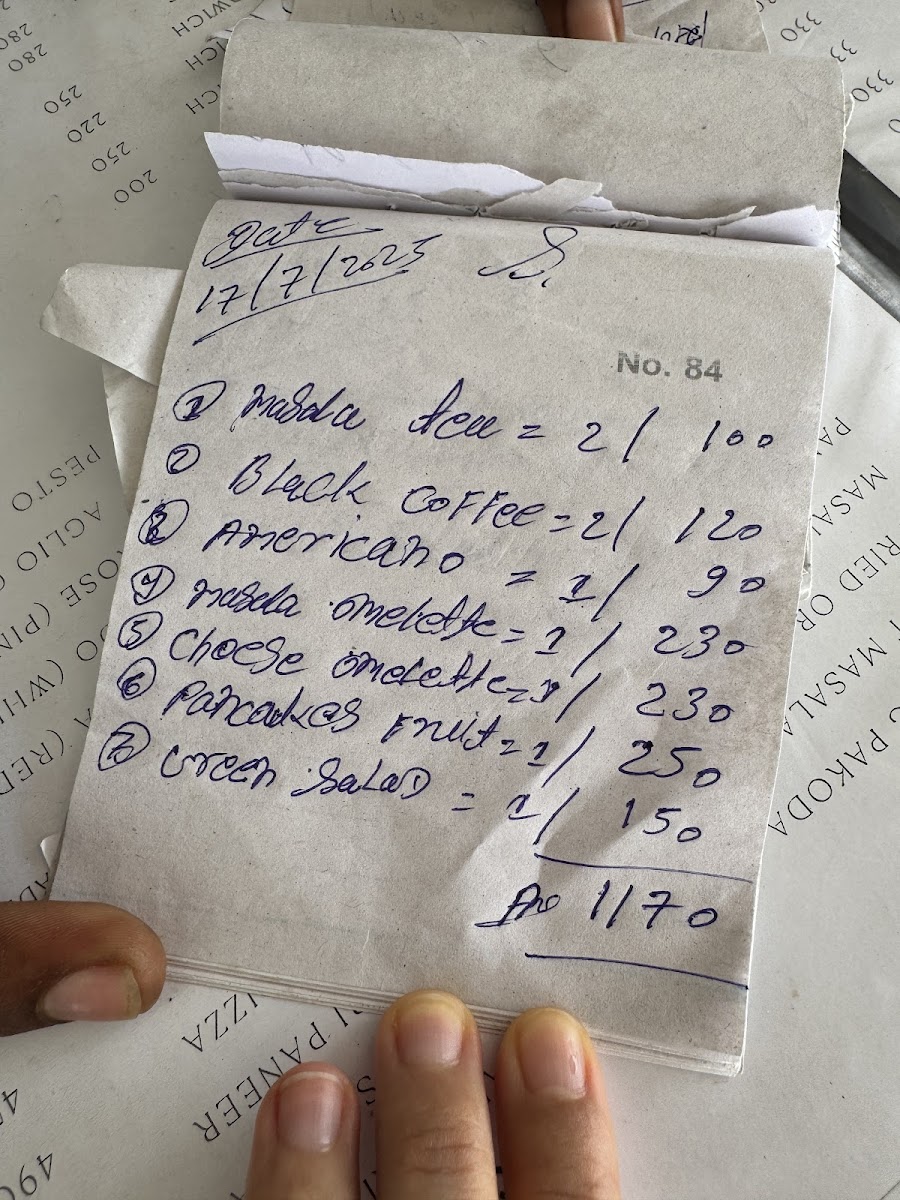 Date
17/7/2025
No. 84
1 Masala tea = 2/ 100
2 Black coffee = 2/ 120
3 Americano = 1/ 90
4 Masala omelette = 1/ 230
5 Cheese omelette = 1/ 230
6 Pancakes Fruit = 1/ 250
7 Green Salad = 1/ 150
1170
WICH
280
280
250
220
250
200
330
330
PESTO
AGLIO
MASAL
RIED OR
MASALA
PAKODA
IZZA
PANEER
490